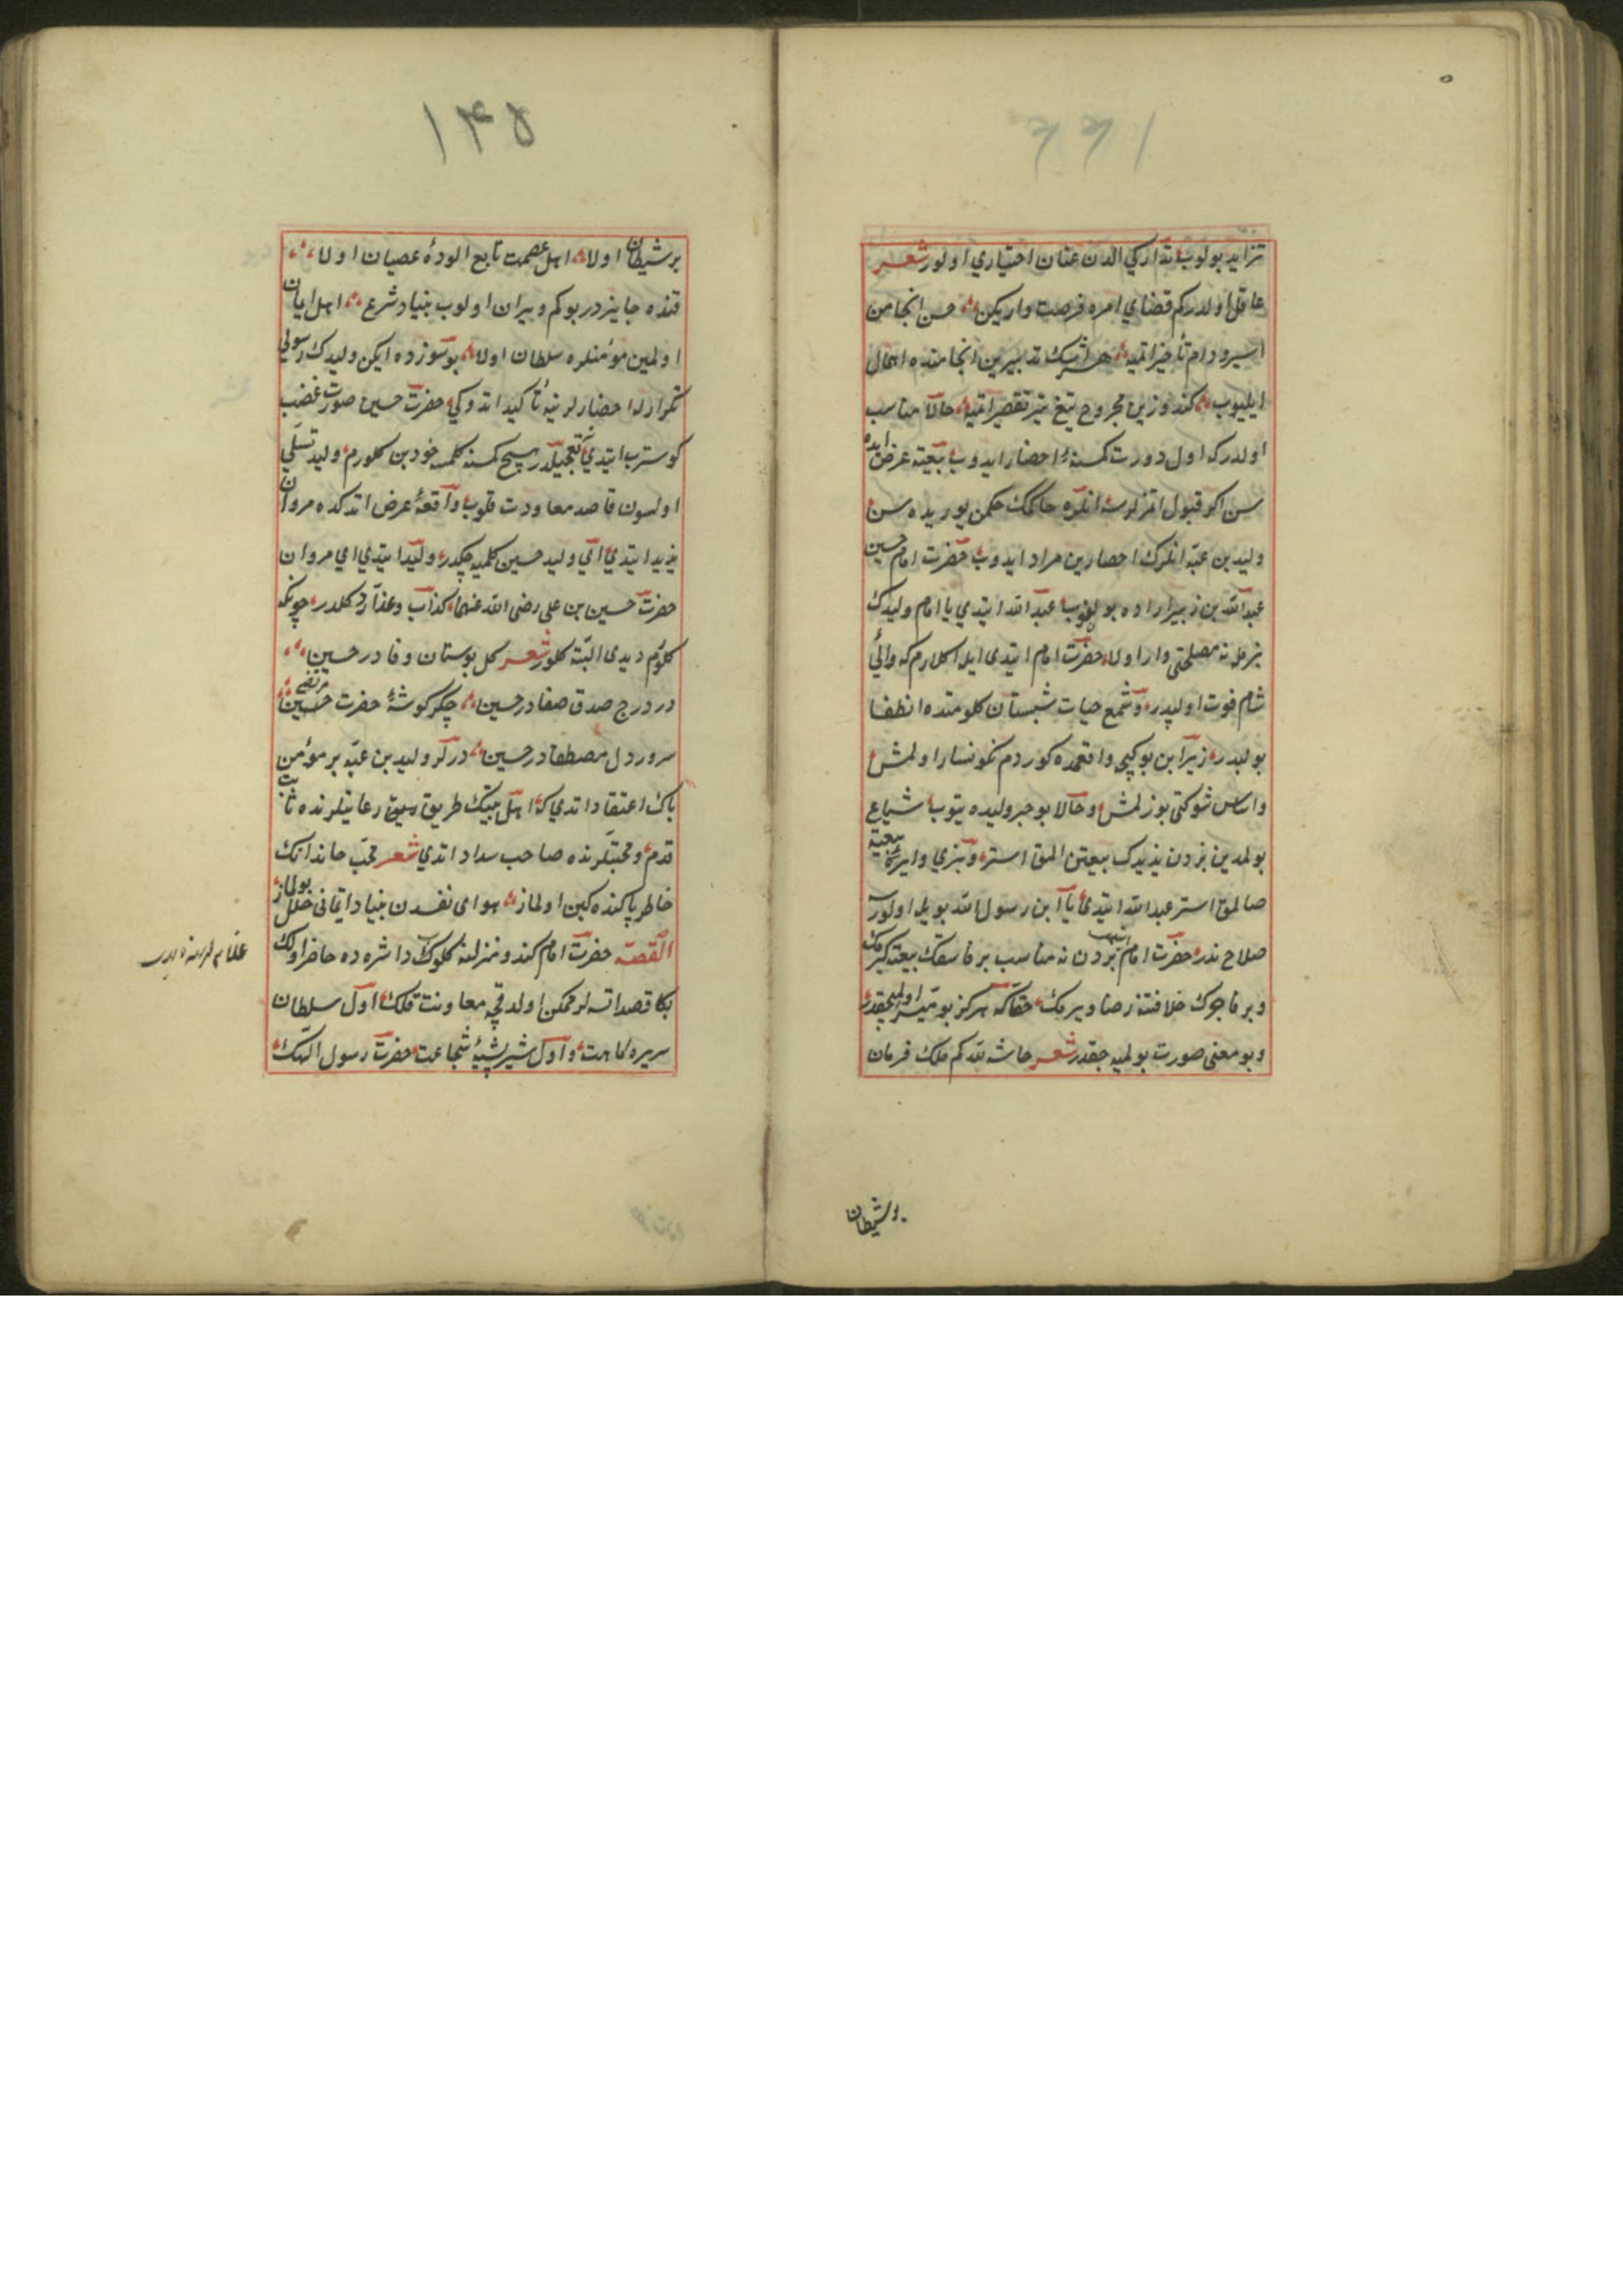 ۱۴۴
تزاید بولوب تدارکی الدن عنان اختیاری اولور شعر
عاقل اولدرکم قضای امره فرصت واریکن حسن انجامن
اسیر دام تأخیر اتمیه هر ایشک تدبیرین انجامنده اهمال
ایلیوب کندوزین مجروح تیغ تیر تقصیر اتمیه حالا مناسب
اولدرکه اول دورت کمسنه احضار ایدوب بیعته عرض ایده
سن اکر قبول اتمزلرسه انلره حاکمک حکمن یوریده سن
ولید بن عتبه انلرک احضارین مراد ایدوب حضرت امام حسین
عبدالله بن زبیر اراده بولنوب عبدالله ایتدی یا امام ولیدک
بزمله نه مصلحتی وار اولا حضرت امام ایتدی ایله اکلارم که والئ
شام فوت اولپدر وشمع حیات شبستان کلومتده انطفا
بولپدر زیرا بن بو کیجه واقعمده کوردم نکونسار اولمش
واساس شوکتی بوزلمش وحالا بو خبر ولیده یتوب شیاع
بولمدین بزدن یزیدک بیعتن المق استر وبزی دایرۀ بیعته
صالمق استر عبدالله ایتدی یا ابن رسول الله بویله اولورسه
صلاح ندر حضرت امام ایتدی بزدن نه مناسب بر فاسقک بیعته کیرمک
وبر فاجرک خلافتنه رضا ویرمک حقا که هرکز بو میسر اولمیجقدر
وبو معنی صورت بولمیه جقدر شعر حاشه لله کم ملک فرمان
بر شیطان
۱۴۵
بر شیطان اولا اهل عصمت تابع الودۀ عصیان اولا
قنده جایزدر بوکم ویران اولوب بنیاد شرع اهل ایمان
اولمین مؤمنلره سلطان اولا بو سوزده ایکن ولیدک رسولی
تکرار لدا حضارلرینه تأکید اتدوکی حضرت حسین صورت غضب
کوسترب ایتدی تعجیللدر هیچ کمسنه کلمسه خود بن کلورم ولید تسلی
اولسون قاصد معاودت قلوب واقعۀ عرض اتدکده مروان
یزید ایتدی ای ولید حسین کلمیه جکدر ولید ایتدی ای مروان
حضرت حسین بن علی رضی الله عنهما کذاب وغدار دکلدر چونکه
کلورم دیدی البته کلور شعر کل بوستان وفا در حسین
در درج صدق صفا در حسین جکر کوشۀ حضرت مرتضی
سرور دل مصطفا در حسین درلر ولید بن عتبه بر مؤمن
پاک اعتقاد اتدی که اهل بیتک طریق رعایتلرنده ثابت
قدم ومحبتلرنده صاحب سداد اتدی شعر محب خاندانک
خاطر پاکنده کین اولماز هوای نفسدن بنیاد ایمانی خلل بولماز
القصه حضرت امام کندو منزلنه کلوب داشره ده حاضر اولک
بکا قصد اتسه لر ممکن اولدقجه معاونت قلک اول سلطان
سریر کرامت واول شیر بیشۀ شجاعت حضرت رسول اللهک